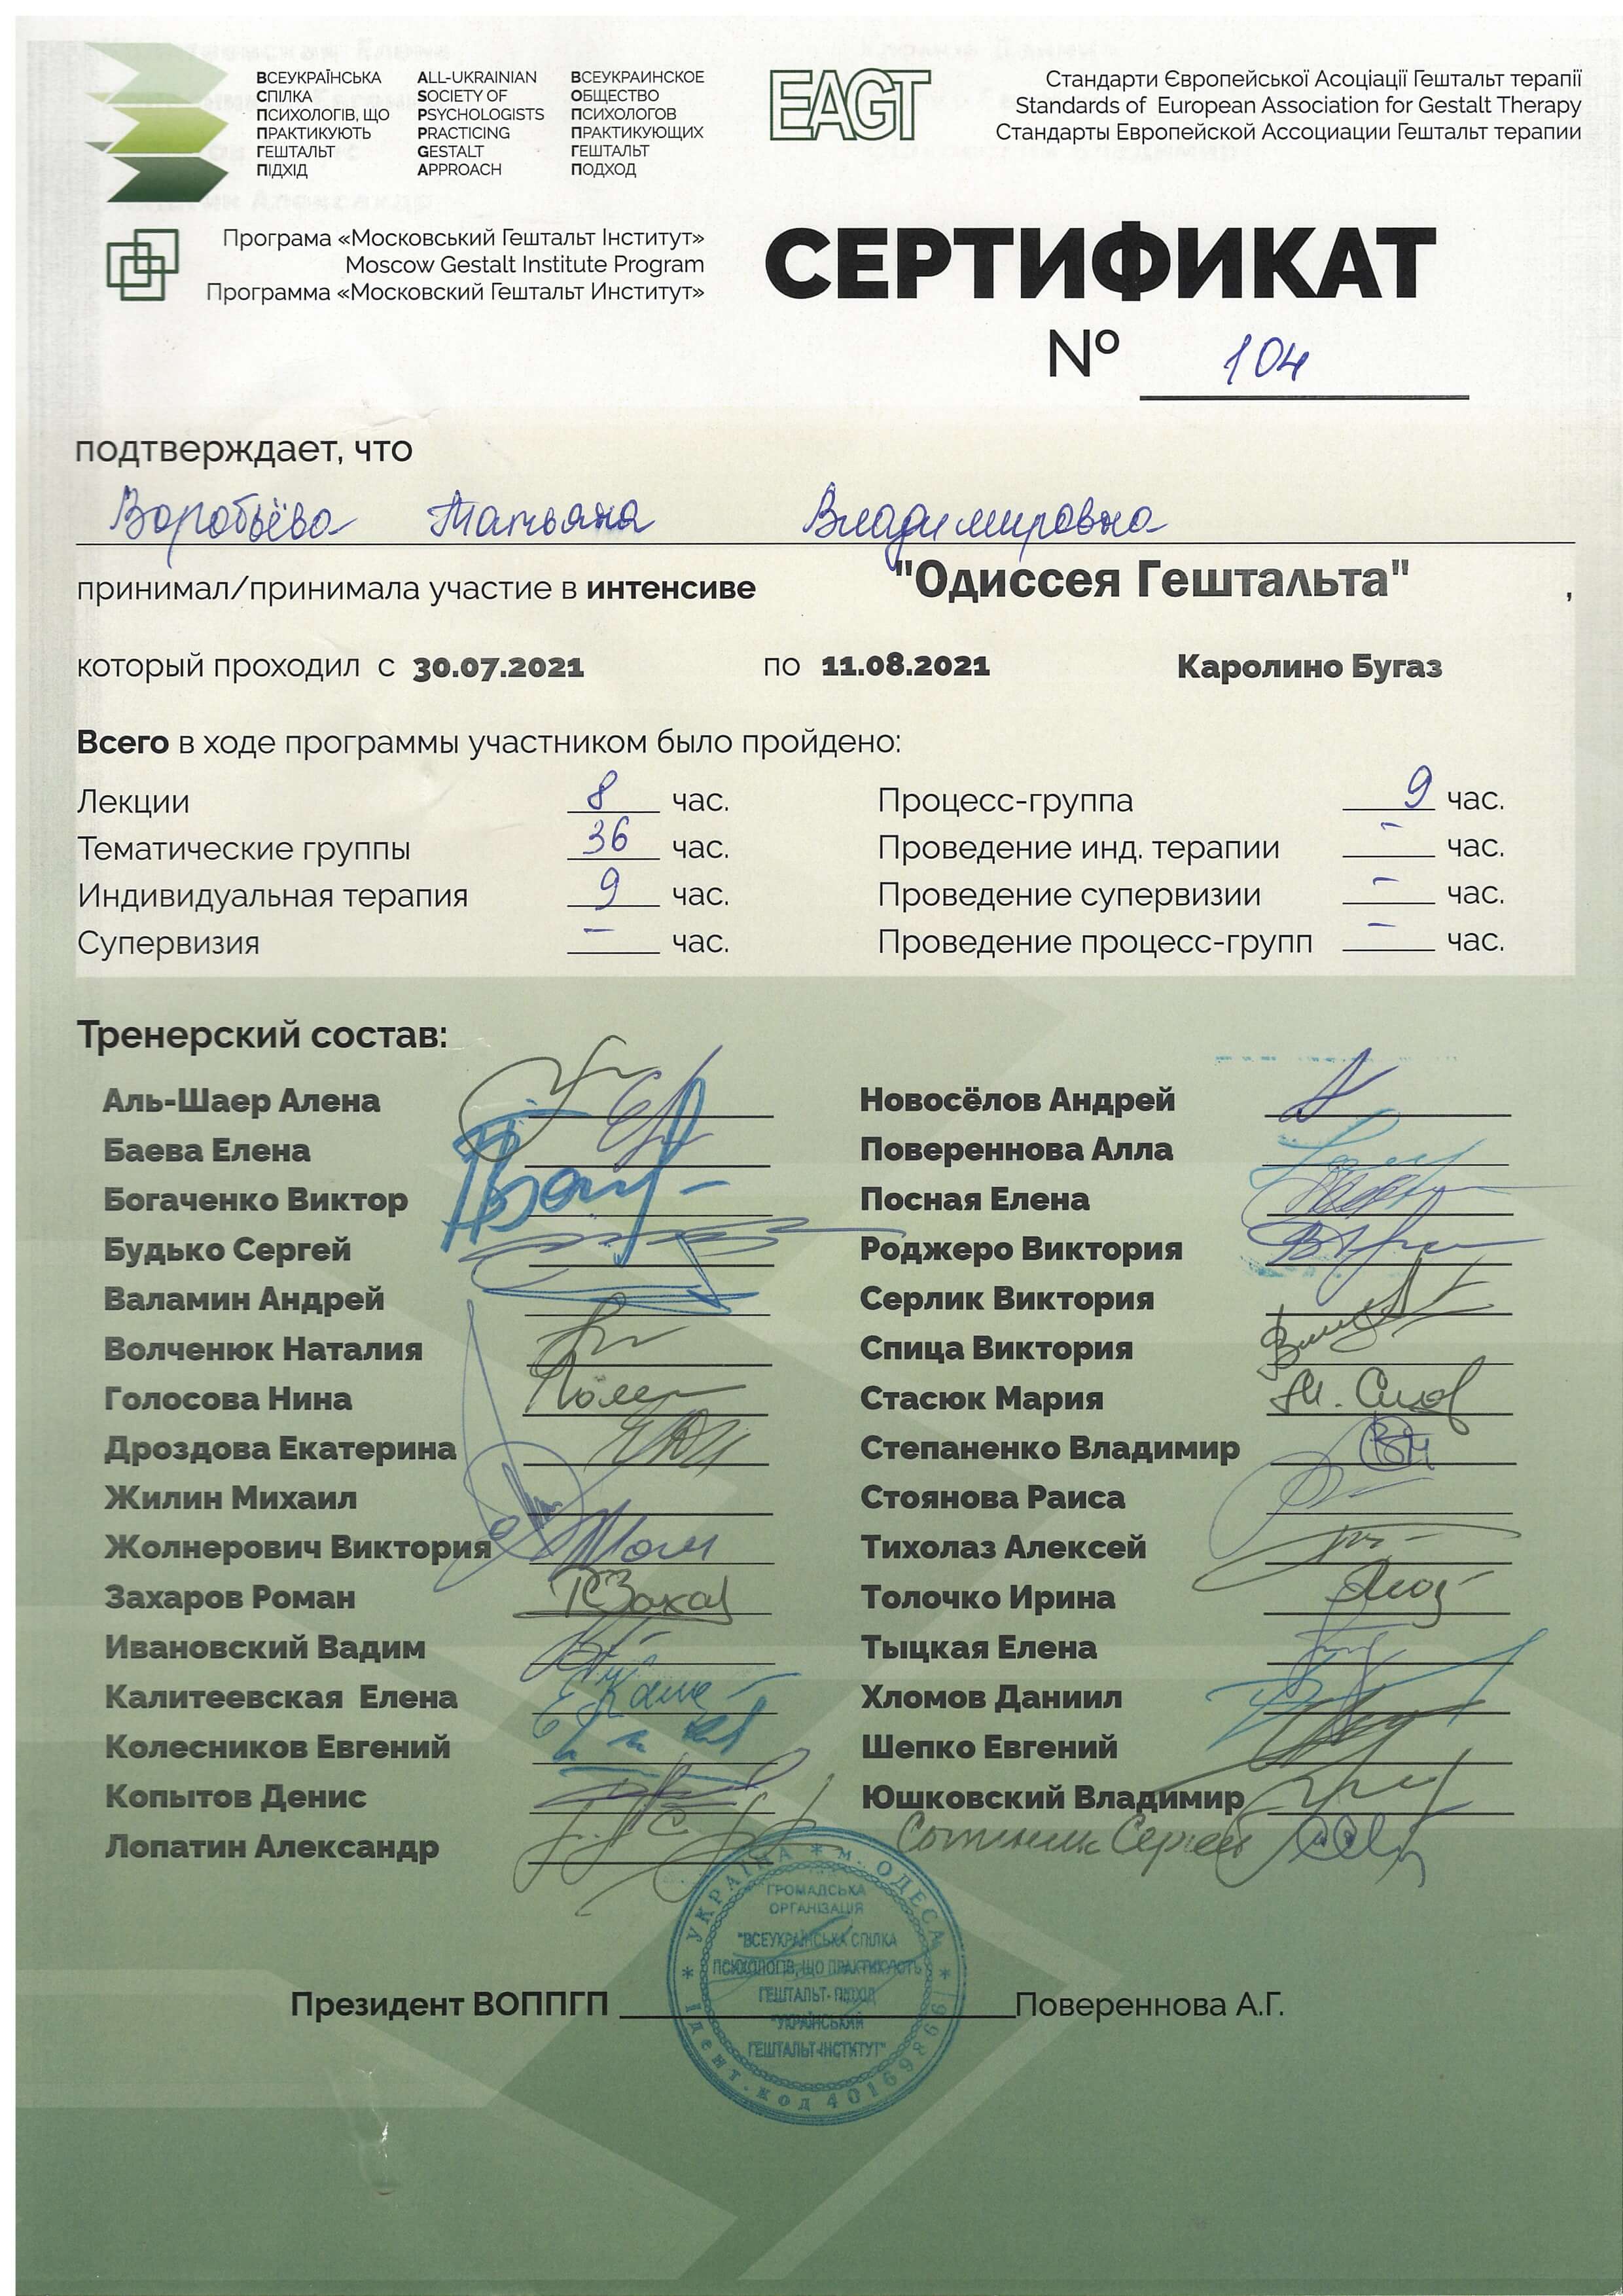 ВСЕУКРАЇНСЬКА
СПІЛКА
ПСИХОЛОГІВ, ЩО
ПРАКТИКУЮТЬ
ГЕШТАЛЬТ
ПІДХІД
ALL-UKRAINIAN
SOCIETY OF
PSYCHOLOGISTS
PRACTICING
GESTALT
APPROACH
ВСЕУКРАИНСКОЕ
ОБЩЕСТВО
ПСИХОЛОГОВ
ПРАКТИКУЮЩИХ
ГЕШТАЛЬТ
ПОДХОД
EAGT
Стандарти Європейської Асоціації Гештальт терапії
Standards of European Association for Gestalt Therapy
Стандарты Европейской Ассоциации Гештальт терапии
Програма «Московський Гештальт Інститут»
Moscow Gestalt Institute Program
Программа «Московский Гештальт Институт»
СЕРТИФИКАТ
№ 104
подтверждает, что
Воробьёва Татьяна Владимировна
принимал/принимала участие в интенсиве "Одиссея Гештальта" ,
который проходил с 30.07.2021 по 11.08.2021 Каролино Бугаз
Всего в ходе программы участником было пройдено:
Лекции 8 час.
Тематические группы 36 час.
Индивидуальная терапия 9 час.
Супервизия – час.
Процесс-группа 9 час.
Проведение инд. терапии – час.
Проведение супервизии – час.
Проведение процесс-групп – час.
Тренерский состав:
Аль-Шаер Алена
Баева Елена
Богаченко Виктор
Будько Сергей
Валамин Андрей
Волченюк Наталия
Голосова Нина
Дроздова Екатерина
Жилин Михаил
Жолнерович Виктория
Захаров Роман
Ивановский Вадим
Калитеевская Елена
Колесников Евгений
Копытов Денис
Лопатин Александр
Новосёлов Андрей
Повереннова Алла
Посная Елена
Роджеро Виктория
Серлик Виктория
Спица Виктория
Стасюк Мария
Степаненко Владимир
Стоянова Раиса
Тихолаз Алексей
Толочко Ирина
Тыцкая Елена
Хломов Даниил
Шепко Евгений
Юшковский Владимир
Сергей
УКРАЇНА * м. ОДЕСА *
ГРОМАДСЬКА
ОРГАНІЗАЦІЯ
"ВСЕУКРАЇНСЬКА СПІЛКА
ПСИХОЛОГІВ, ЩО ПРАКТИКУЮТЬ
ГЕШТАЛЬТ- ПІДХІД
"УКРАЇНСЬКИЙ
ГЕШТАЛЬТ-ІНСТИТУТ"
Ідент.код 40169866
Президент ВОППГП Повереннова А.Г.